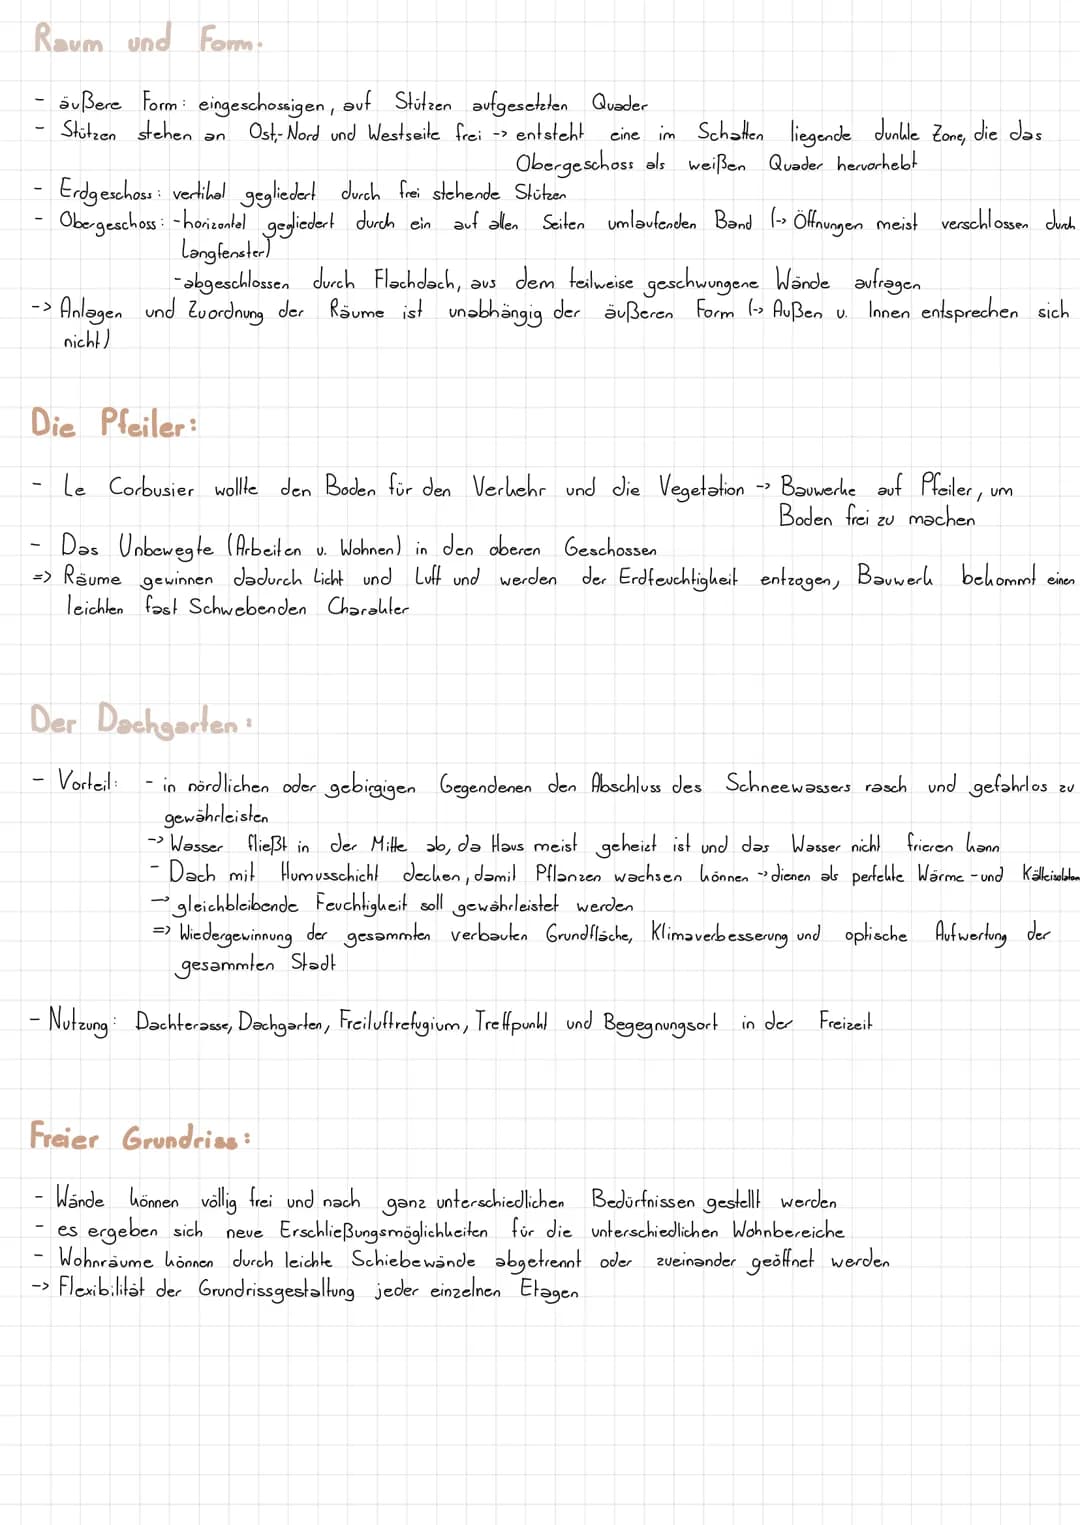 Raum und Form:
- äußere Form: eingeschossigen, auf Stützen aufgesetzten Quader
- Stützen stehen an Ost,- Nord und Westseite frei -> entsteht eine im Schatten liegende dunkle Zone, die das
Obergeschoss als weißen Quader hervorhebt
- Erdgeschoss: vertikal gegliedert durch frei stehende Stützen
- Obergeschoss: - horizontal gegliedert durch ein auf allen Seiten umlaufenden Band (-> Öffnungen meist verschlossen durch
Langfenster)
- abgeschlossen durch Flachdach, aus dem teilweise geschwungene Wände aufragen
-> Anlagen und Zuordnung der Räume ist unabhängig der äußeren Form (-> Außen u. Innen entsprechen sich
nicht)
Die Pfeiler:
- Le Corbusier wollte den Boden für den Verkehr und die Vegetation -> Bauwerke auf Pfeiler, um
Boden frei zu machen
- Das Unbewegte (Arbeiten u. Wohnen) in den oberen Geschossen
=> Räume gewinnen dadurch Licht und Luft und werden der Erdfeuchtigkeit entzogen, Bauwerk bekommt einen
leichten fast Schwebenden Charakter
Der Dachgarten:
- Vorteil: - in nördlichen oder gebirgigen Gegendenen den Abschluss des Schneewassers rasch und gefahrlos zu
gewährleisten
-> Wasser fließt in der Mitte ab, da Haus meist geheizt ist und das Wasser nicht frieren kann
- Dach mit Humusschicht decken, damit Pflanzen wachsen können -> dienen als perfekte Wärme - und Kälteisolation
-> gleichbleibende Feuchtigkeit soll gewährleistet werden
=> Wiedergewinnung der gesammten verbauten Grundfläche, Klimaverbesserung und optische Aufwertung der
gesammten Stadt
- Nutzung: Dachterasse, Dachgarten, Freiluftrefugium, Treffpunkt und Begegnungsort in der Freizeit
Freier Grundriss:
- Wände können völlig frei und nach ganz unterschiedlichen Bedürfnissen gestellt werden
- es ergeben sich neue Erschließungsmöglichkeiten für die unterschiedlichen Wohnbereiche
- Wohnräume können durch leichte Schiebewände abgetrennt oder zueinander geöffnet werden
-> Flexibilität der Grundrissgestaltung jeder einzelnen Etagen